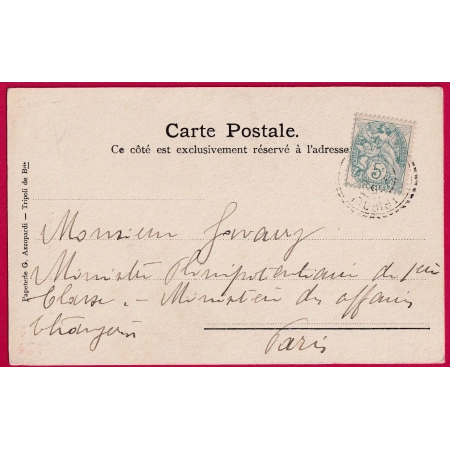 Carte Postale.
Ce côté est exclusivement réservé à l'adresse
5
Papeterie G. Azzopardi — Tripoli de Bie
Monsieur
Ministre Plénipotentiaire de 1ère
Classe. - Ministère des affaires
Etrangères
Paris